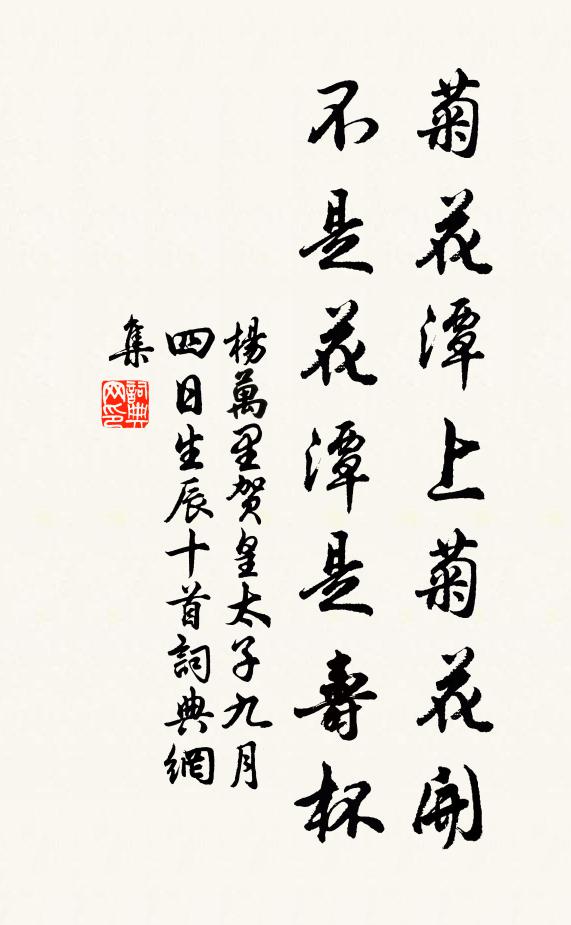 菊花潭上菊花開
不是花潭是壽杯
楊萬里贺皇太子九月
四日生辰十首詞典網
集
詞典网印